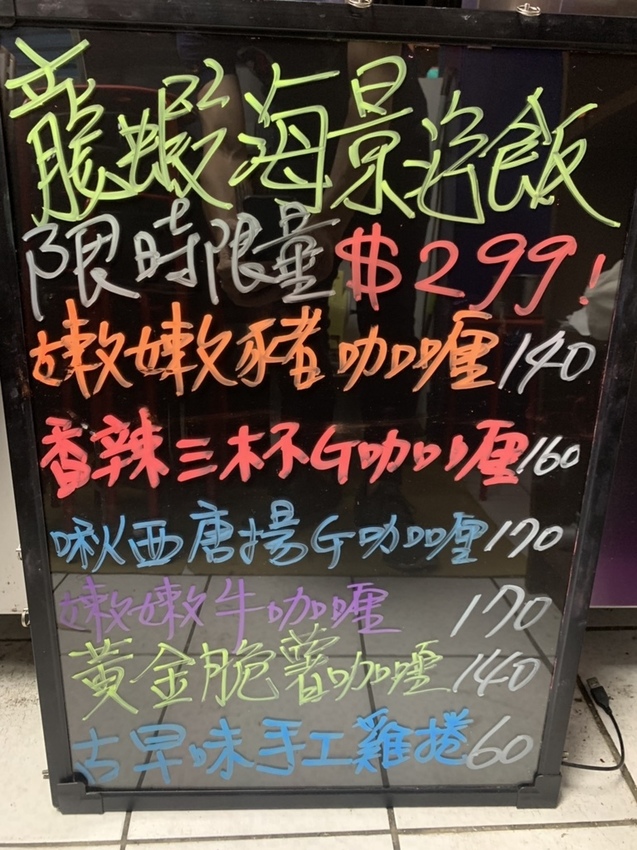 龍蝦海景泡飯
限時限量$299!
嫩嫩豬咖喱140
香辣三杯G咖喱160
啾西唐揚G咖喱170
嫩嫩牛咖喱 170
黃金脆薯咖喱140
古早味手工雞捲60